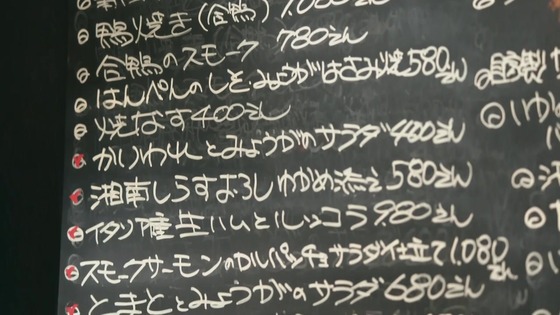 鴨焼き(合鴨)
合鴨のスモーク 780えん
はんぺんのしそ・みょうがはさみ焼580えん
焼なす400えん
かいわれとみょうがのサラダ480えん
湘南しらすおろしわかめ添え580えん
イタリア産生ハムとルッコラ980えん
スモークサーモンのカルパッチョサラダ仕立て1,080えん
とまととみょうがのサラダ680えん
自家製